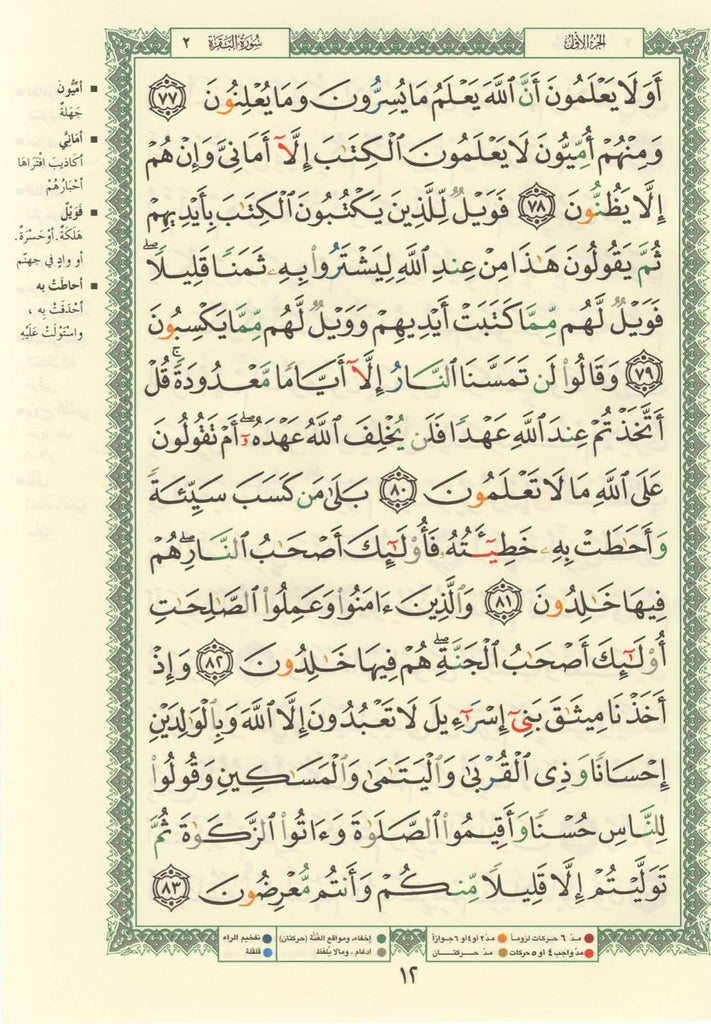 الجزء الأول
سورة البقرة
٢
أَوَلَا يَعْلَمُونَ أَنَّ ٱللَّهَ يَعْلَمُ مَا يُسِرُّونَ وَمَا يُعْلِنُونَ ٧٧
وَمِنْهُمْ أُمِّيُّونَ لَا يَعْلَمُونَ ٱلْكِتَٰبَ إِلَّآ أَمَانِىَّ وَإِنْ هُمْ
إِلَّا يَظُنُّونَ ٧٨ فَوَيْلٌ لِّلَّذِينَ يَكْتُبُونَ ٱلْكِتَٰبَ بِأَيْدِيهِمْ
ثُمَّ يَقُولُونَ هَٰذَا مِنْ عِندِ ٱللَّهِ لِيَشْتَرُوا۟ بِهِۦ ثَمَنًا قَلِيلًا ۖ
فَوَيْلٌ لَّهُم مِّمَّا كَتَبَتْ أَيْدِيهِمْ وَوَيْلٌ لَّهُم مِّمَّا يَكْسِبُونَ
٧٩ وَقَالُوا۟ لَن تَمَسَّنَا ٱلنَّارُ إِلَّآ أَيَّامًا مَّعْدُودَةً ۚ قُلْ
أَتَّخَذْتُمْ عِندَ ٱللَّهِ عَهْدًا فَلَن يُخْلِفَ ٱللَّهُ عَهْدَهُۥٓ ۖ أَمْ تَقُولُونَ
عَلَى ٱللَّهِ مَا لَا تَعْلَمُونَ ٨٠ بَلَىٰ مَن كَسَبَ سَيِّئَةً
وَأَحَٰطَتْ بِهِۦ خَطِيٓـَٔتُهُۥ فَأُو۟لَٰٓئِكَ أَصْحَٰبُ ٱلنَّارِ ۖ هُمْ
فِيهَا خَٰلِدُونَ ٨١ وَٱلَّذِينَ ءَامَنُوا۟ وَعَمِلُوا۟ ٱلصَّٰلِحَٰتِ
أُو۟لَٰٓئِكَ أَصْحَٰبُ ٱلْجَنَّةِ ۖ هُمْ فِيهَا خَٰلِدُونَ ٨٢ وَإِذْ
أَخَذْنَا مِيثَٰقَ بَنِىٓ إِسْرَٰٓءِيلَ لَا تَعْبُدُونَ إِلَّا ٱللَّهَ وَبِٱلْوَٰلِدَيْنِ
إِحْسَانًا وَذِى ٱلْقُرْبَىٰ وَٱلْيَتَٰمَىٰ وَٱلْمَسَٰكِينِ وَقُولُوا۟
لِلنَّاسِ حُسْنًا وَأَقِيمُوا۟ ٱلصَّلَوٰةَ وَءَاتُوا۟ ٱلزَّكَوٰةَ ثُمَّ
تَوَلَّيْتُمْ إِلَّا قَلِيلًا مِّنكُمْ وَأَنتُم مُّعْرِضُونَ ٨٣
■ أُمِّيُّونَ
جَهَلَةٌ
■ أَمَانِيَّ
أَكَاذِيبَ افْتَرَاهَا
أَحْبَارُهُمْ
■ فَوَيْلٌ
هَلَكَةٌ. أَوْ حَسْرَةٌ.
أو وادٍ في جهنم
■ أَحَاطَتْ به
أَحْدَقَتْ بِهِ ،
واسْتَوْلَتْ عَلَيْهِ
● مدّ ٦ حركات لزوماً ● مدّ ٢ أو ٤ أو ٦ جوازاً
● مدّ واجب ٤ أو ٥ حركات ● مدّ حركتان
● إخفاء، ومواقع الغُنَّة (حركتان) ● تفخيم الراء
● ادغام، ومالا يُلفَظ ● قلقلة
١٢